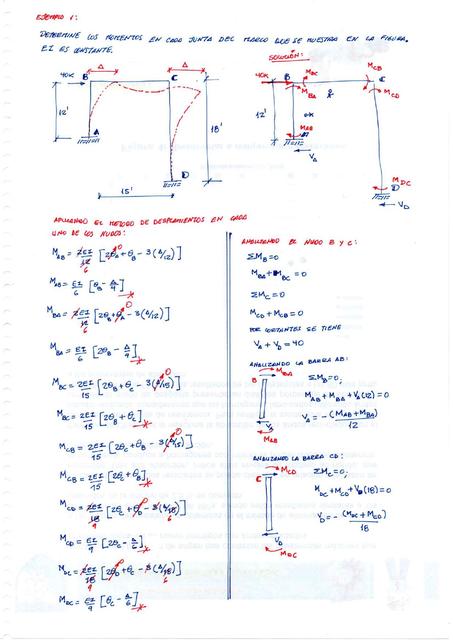 EJEMPLO 1:
DETERMINE LOS MOMENTOS EN CADA JUNTA DEL MARCO QUE SE MUESTRA EN LA FIGURA.
EI ES CONSTANTE.
SOLUCIÓN:
Δ Δ
40K B C
12'
A
18'
D
15'
40K B M_BC M_CB C
M_BA M_CD
12'
M_AB
V_A
M_DC
D
V_D
APLICANDO EL METODO DE DESPLAMIENTOS EN CADA
UNO DE LOS NUDOS:
M_AB = 2EI/12 6 [2θ_A 0 + θ_B - 3(Δ/12)]
M_AB = EI/6 [θ_B - Δ/4]
M_BA = 2EI/12 6 [2θ_B + θ_A 0 - 3(Δ/12)]
M_BA = EI/6 [2θ_B - Δ/4]
M_BC = 2EI/15 [2θ_B + θ_C - 3(Δ/15) 0]
M_BC = 2EI/15 [2θ_B + θ_C]
M_CB = 2EI/15 [2θ_C + θ_B - 3(Δ/15) 0]
M_CB = 2EI/15 [2θ_C + θ_B]
M_CD = 2EI/18 9 [2θ_C + θ_D 0 - 3(Δ/18) 6]
M_CD = EI/9 [2θ_C - Δ/6]
M_DC = 2EI/18 9 [2θ_D 0 + θ_C - 3(Δ/18) 6]
M_DC = EI/9 [θ_C - Δ/6]
ANALIZANDO EL NUDO B Y C:
ΣM_B = 0
M_BA + M_BC = 0
ΣM_C = 0
M_CD + M_CB = 0
POR CORTANTES SE TIENE
V_A + V_D = 40
ANALIZANDO LA BARRA AB:
M_BA
B
V_A
M_AB
ΣM_B = 0;
M_AB + M_BA + V_A(12) = 0
V_A = -(M_AB + M_BA)/12
ANALIZANDO LA BARRA CD:
M_CD
C
V_D
M_DC
ΣM_C = 0;
M_DC + M_CD + V_D(18) = 0
V_D = -(M_DC + M_CD)/18